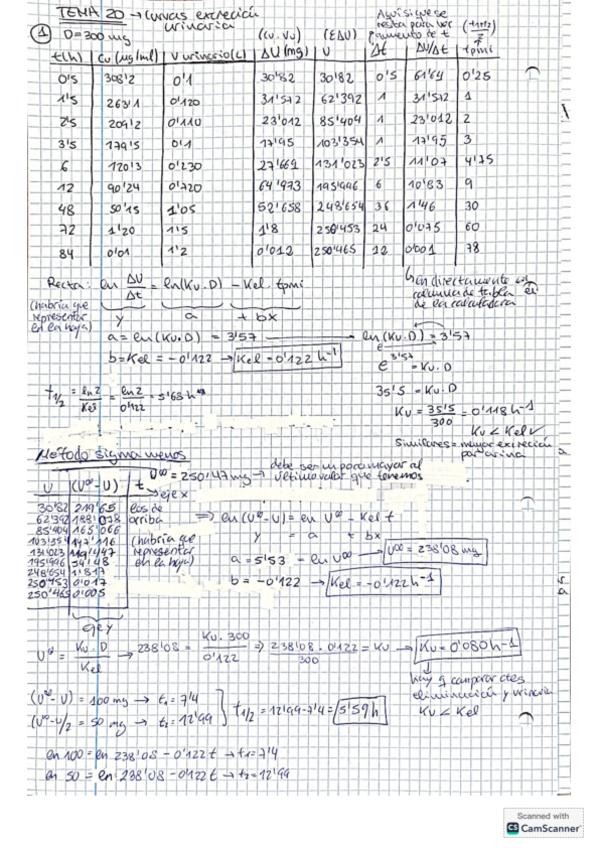 TEMA 20 → curvas excreción urinaria
① D=300 mg
(Cu.Vu) (ΣΔU) Aquí sigue se resta para ver aumento de t
t(h) Cu(µg/ml) V urinario(L) ΔU(mg) U Δt ΔU/Δt tpmi
0'5 308'2 0'1 30'82 30'82 0'5 61'64 0'25
1'5 263'1 0'120 31'572 62'392 1 31'572 1
2'5 209'2 0'110 23'012 85'404 1 23'012 2
3'5 179'5 0'1 17'95 103'354 1 17'95 3
6 120'3 0'230 27'669 131'023 2'5 11'07 4'75
12 90'24 0'720 64'973 195'996 6 10'83 9
48 50'15 1'05 52'658 248'654 36 1'46 30
72 1'20 1'5 1'8 250'453 24 0'075 60
84 0'01 1'2 0'012 250'465 12 0'001 78
Recta: ln ΔU/Δt = ln(Ku.D) - Kel.tpmi
(habría que representar en la hoja)
y a + bx
↳ en directamente en columna de tabla de la calculadora
a = ln(Ku.D) = 3'57 → ln(Ku.D) = 3'57
b = Kel = -0'122 → Kel = 0'122 h-1
e^3'57 = Ku.D
35'5 = Ku.D
t1/2 = ln2/Kel = ln2/0'122 = 5'68 h
Ku = 35'5/300 = 0'118 h-1
Ku < Kel
Similares = mayor excreción por orina
Método sigma menos
U (U∞-U) t
U∞ = 250'47 mg → debe ser un poco mayor al último valor que tenemos
→ eje x
30'82 219'65 los de
62'392 188'078 arriba
85'404 165'066
103'354 147'116 (habría que
131'023 119'447 representar
195'996 54'48 en la hoja)
248'654 1'817
250'453 0'017
250'465 0'005
eje y
⇒ ln(U∞-U) = ln U∞ - Kel t
y = a + bx
a = 5'53 → ln U∞ → U∞ = 238'08 mg
b = -0'122 → Kel = -0'122 h-1
U∞ = Ku.D/Kel → 238'08 = Ku.300/0'122 ⇒ 238'08.0'122/300 = Ku → Ku = 0'080 h-1
hay q comparar ctes eliminación y urinaria
Ku < Kel
(U∞-U) = 100 mg → t1 = 7'4
(U∞-U/2 = 50 mg → t2 = 12'99
t1/2 = 12'99-7'4 = 5'59 h
ln 100 = ln 238'08 - 0'122 t → t1 = 7'4
ln 50 = ln 238'08 - 0'122 t → t2 = 12'99
Scanned with
CS CamScanner